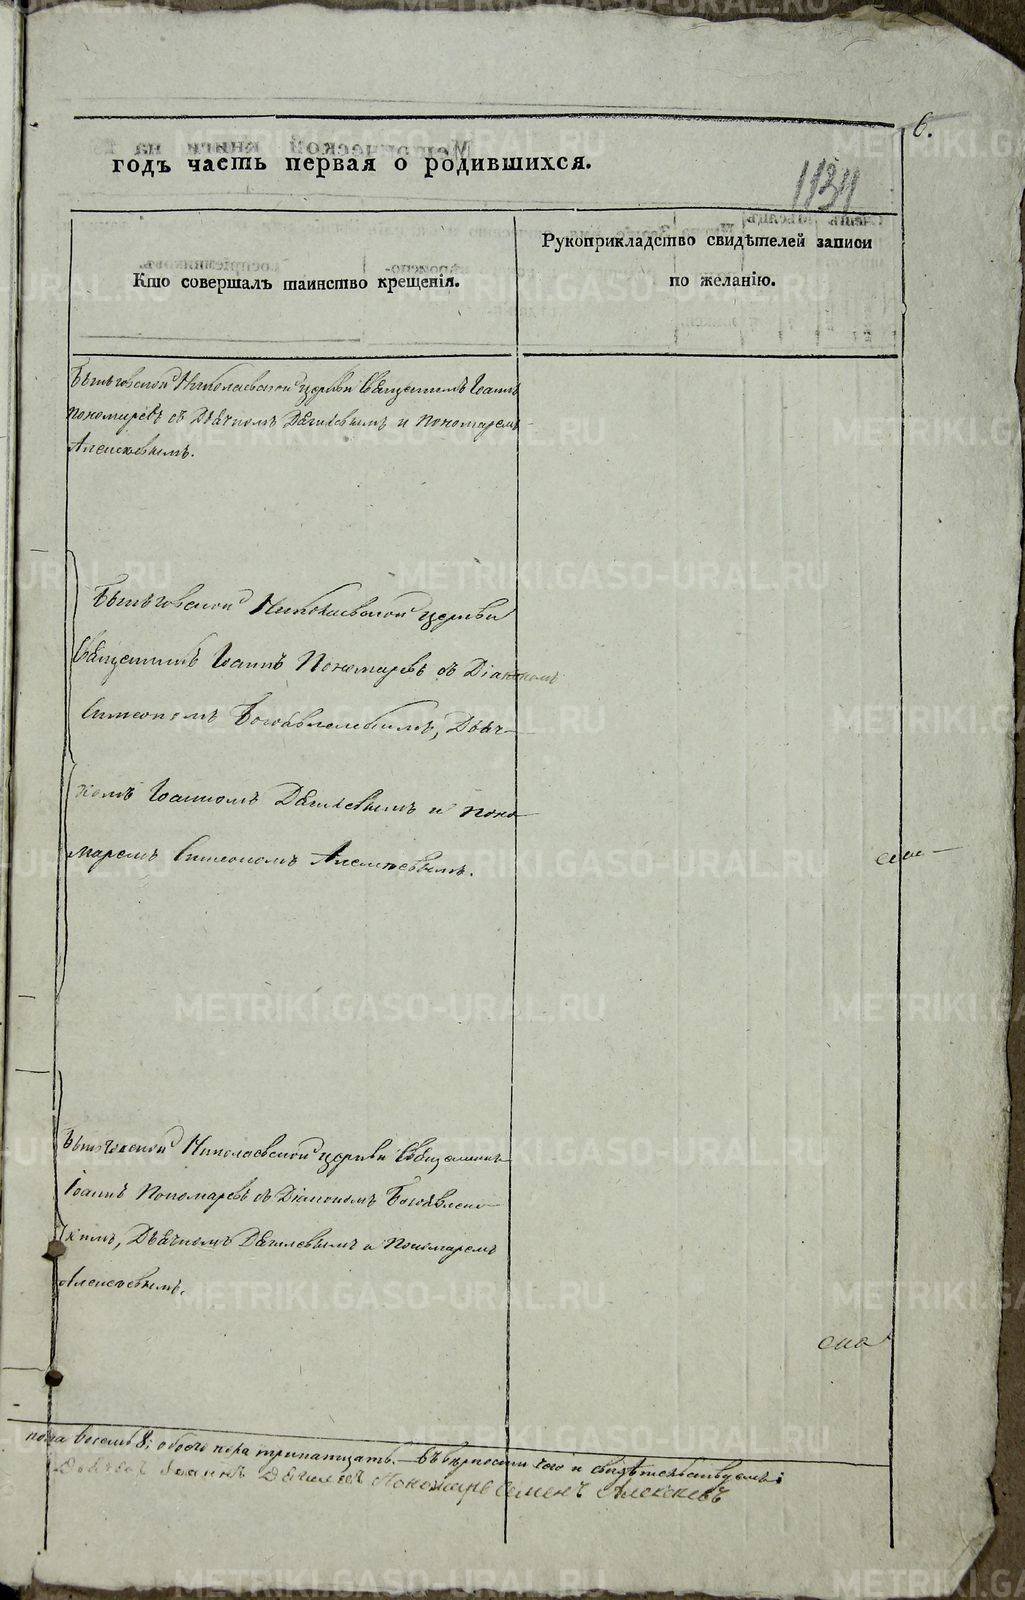 6.
годъ часть первая о родившихся.
1134
Кто совершалъ таинство крещенія.
Рукоприкладство свидѣтелей записи
по желанію.
Николаевской церкви Священникъ Іоаннъ
Пономаревъ съ Дьячкомъ Дягилевымъ и Пономаремъ
Алексѣевымъ.
Николаевской церкви
Священникъ Іоаннъ Пономаревъ съ Діакономъ
Симеономъ Богоявленскимъ, Дьяч-
комъ Іоанномъ Дягилевымъ и Поно-
маремъ Симеономъ Алексѣевымъ.
Николаевской церкви Священникъ
Іоаннъ Пономаревъ съ Діакономъ Богоявлен-
скимъ, Дьячкомъ Дягилевымъ и Пономаремъ
Алексѣевымъ.
пола восемь 8; обоего пола тринатцать. Въ вѣрности чего и свидѣтельствуемъ:
Дьячекъ Іоаннъ Дягилевъ Пономарь Семенъ Алексѣевъ
METRIKI.GASO-URAL.RU